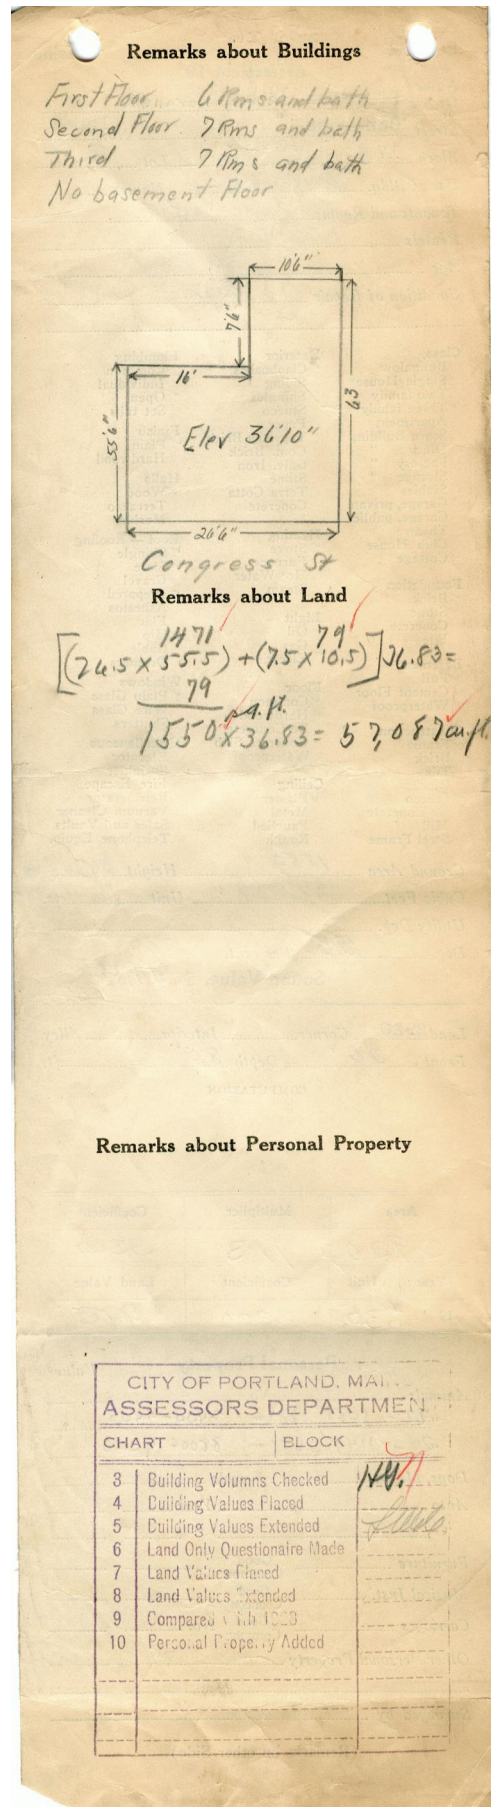 Remarks about Buildings
First Floor 6 Rms and bath
Second Floor 7 Rms and bath
Third 7 Rms and bath
No basement Floor
10'6"
7'6"
16'
63
55'6"
Elev 36'10"
26'6"
Congress St
Remarks about Land
1471 79
[(26.5 x 55.5) + (7.5 x 10.5)] 36.83 =
79
1550 sq. ft. x 36.83 = 57,087 cu. ft.
Remarks about Personal Property
CITY OF PORTLAND, MAI
ASSESSORS DEPARTMEN
CHART BLOCK
3 Building Volumns Checked H.G.
4 Building Values Placed
5 Building Values Extended
6 Land Only Questionaire Made
7 Land Values Placed
8 Land Values Extended
9 Compared
10 Personal Property Added